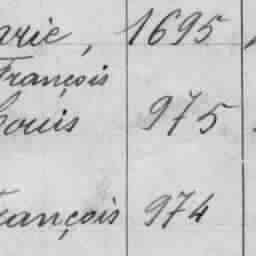 arie, 1695
François
Louis 975
François 974